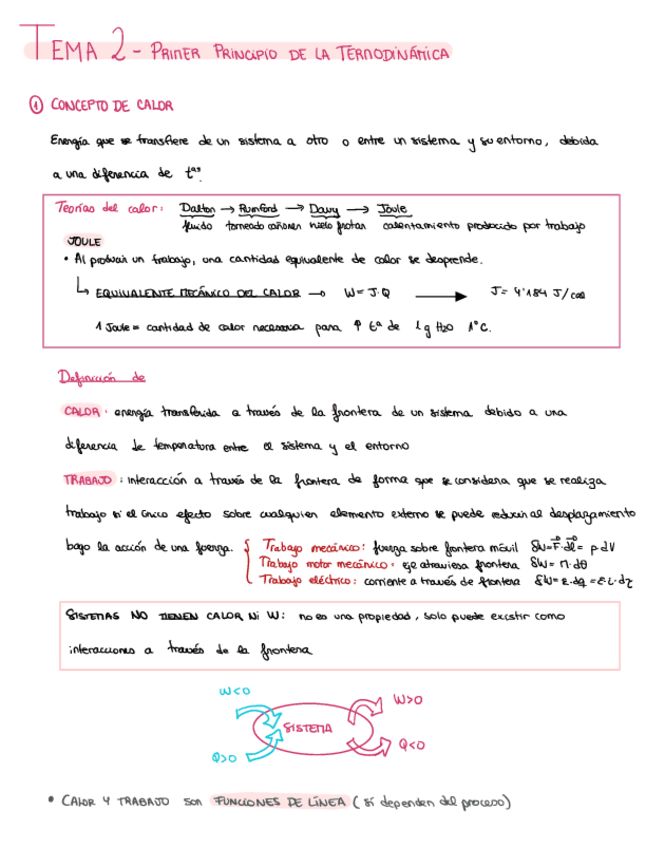 TEMA 2 - PRIMER PRINCIPIO DE LA TERMODINÁMICA
① CONCEPTO DE CALOR
Energía que se transfiere de un sistema a otro o entre un sistema y su entorno, debida
a una diferencia de tªs.
Teorías del calor: Dalton → Rumford → Davy → Joule
fluido torneado cañones hielo frotar calentamiento producido por trabajo
JOULE
• Al producir un trabajo, una cantidad equivalente de calor se desprende.
↳ EQUIVALENTE MECÁNICO DEL CALOR → W = J·Q → J = 4'184 J/cal
1 Joule = cantidad de calor necesaria para ↑ tª de 1 g H2O 1°C.
Definición de
CALOR: energía transferida a través de la frontera de un sistema debido a una
diferencia de temperatura entre el sistema y el entorno
TRABAJO: interacción a través de la frontera de forma que se considera que se realiza
trabajo si el único efecto sobre cualquier elemento externo se puede reducir al desplazamiento
bajo la acción de una fuerza. { Trabajo mecánico: fuerza sobre frontera móvil δW = F·dl = p·dV
Trabajo motor mecánico: eje atraviesa frontera δW = M·dθ
Trabajo eléctrico: corriente a través de frontera δW = ε·dq = ε·i·dζ
SISTEMAS NO TIENEN CALOR NI W: no es una propiedad, solo puede existir como
interacciones a través de la frontera
W<0
W>0
SISTEMA
Q>0
Q<0
• CALOR Y TRABAJO son FUNCIONES DE LÍNEA (sí dependen del proceso)